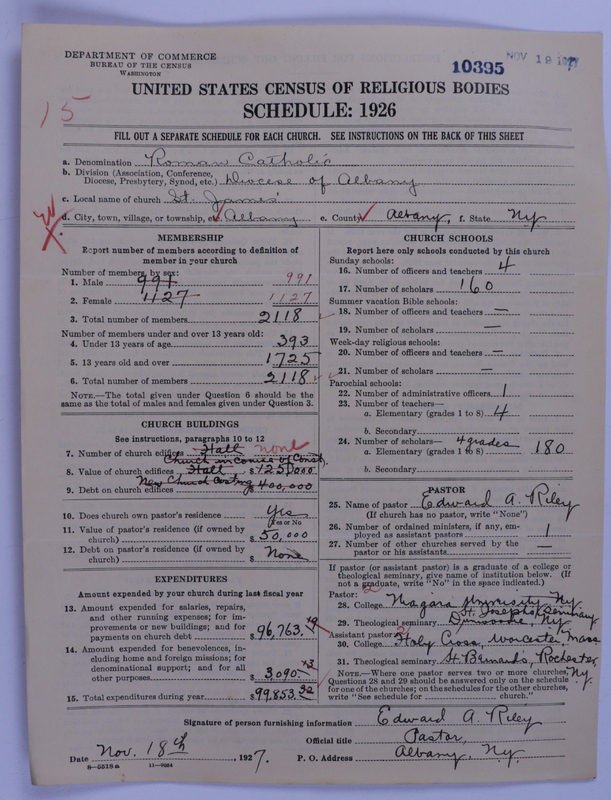 DEPARTMENT OF COMMERCE
BUREAU OF THE CENSUS
WASHINGTON
10395
NOV 19 1927
15
UNITED STATES CENSUS OF RELIGIOUS BODIES
SCHEDULE: 1926
FILL OUT A SEPARATE SCHEDULE FOR EACH CHURCH. SEE INSTRUCTIONS ON THE BACK OF THIS SHEET
a. Denomination Roman Catholic
b. Division (Association, Conference, Diocese, Presbytery, Synod, etc.) Diocese of Albany
c. Local name of church St. James'
d. City, town, village, or township, etc. Albany e. County Albany, f. State Ny
MEMBERSHIP
Report number of members according to definition of member in your church
Number of members, by sex:
1. Male 991 991
2. Female 1127 1127
3. Total number of members 2118
Number of members under and over 13 years old:
4. Under 13 years of age 393
5. 13 years old and over 1725
6. Total number of members 2118
NOTE.—The total given under Question 6 should be the same as the total of males and females given under Question 3.
CHURCH BUILDINGS
See instructions, paragraphs 10 to 12
7. Number of church edifices Hall none
Church in course of Const.
8. Value of church edifices Hall $ 125,000
New Church costing
9. Debt on church edifices $ 400,000
10. Does church own pastor's residence Yes
(Yes or No
11. Value of pastor's residence (if owned by church) $ 50,000
12. Debt on pastor's residence (if owned by church) $ None
EXPENDITURES
Amount expended by your church during last fiscal year
13. Amount expended for salaries, repairs, and other running expenses; for improvements or new buildings; and for payments on church debt $ 96,763.19
14. Amount expended for benevolences, including home and foreign missions; for denominational support; and for all other purposes $ 3,090.13
15. Total expenditures during year $ 99,853.32
CHURCH SCHOOLS
Report here only schools conducted by this church
Sunday schools:
16. Number of officers and teachers 4
17. Number of scholars 160
Summer vacation Bible schools:
18. Number of officers and teachers —
19. Number of scholars —
Week-day religious schools:
20. Number of officers and teachers —
21. Number of scholars —
Parochial schools:
22. Number of administrative officers 1
23. Number of teachers—
a. Elementary (grades 1 to 8) 4
b. Secondary
24. Number of scholars— 4 grades
a. Elementary (grades 1 to 8) 180
b. Secondary
PASTOR
25. Name of pastor Edward A. Riley
(If church has no pastor, write "None")
26. Number of ordained ministers, if any, employed as assistant pastors 1
27. Number of other churches served by the pastor or his assistants —
If pastor (or assistant pastor) is a graduate of a college or theological seminary, give name of institution below. (If not a graduate, write "No" in the space indicated.)
Pastor: 2
28. College Niagara University Ny.
St. Joseph's Seminary
29. Theological seminary Dunwoodie, Ny
Assistant pastor: 2
30. College Holy Cross, Worcester, Mass
31. Theological seminary St. Bernard's, Rochester, Ny.
NOTE.—Where one pastor serves two or more churches, Questions 28 and 29 should be answered only on the schedule for one of the churches; on the schedules for the other churches, write "See schedule for church."
Signature of person furnishing information Edward A. Riley
Official title Pastor,
Date Nov. 18th, 1927. P. O. Address Albany, Ny.
8—5518a 11—9084